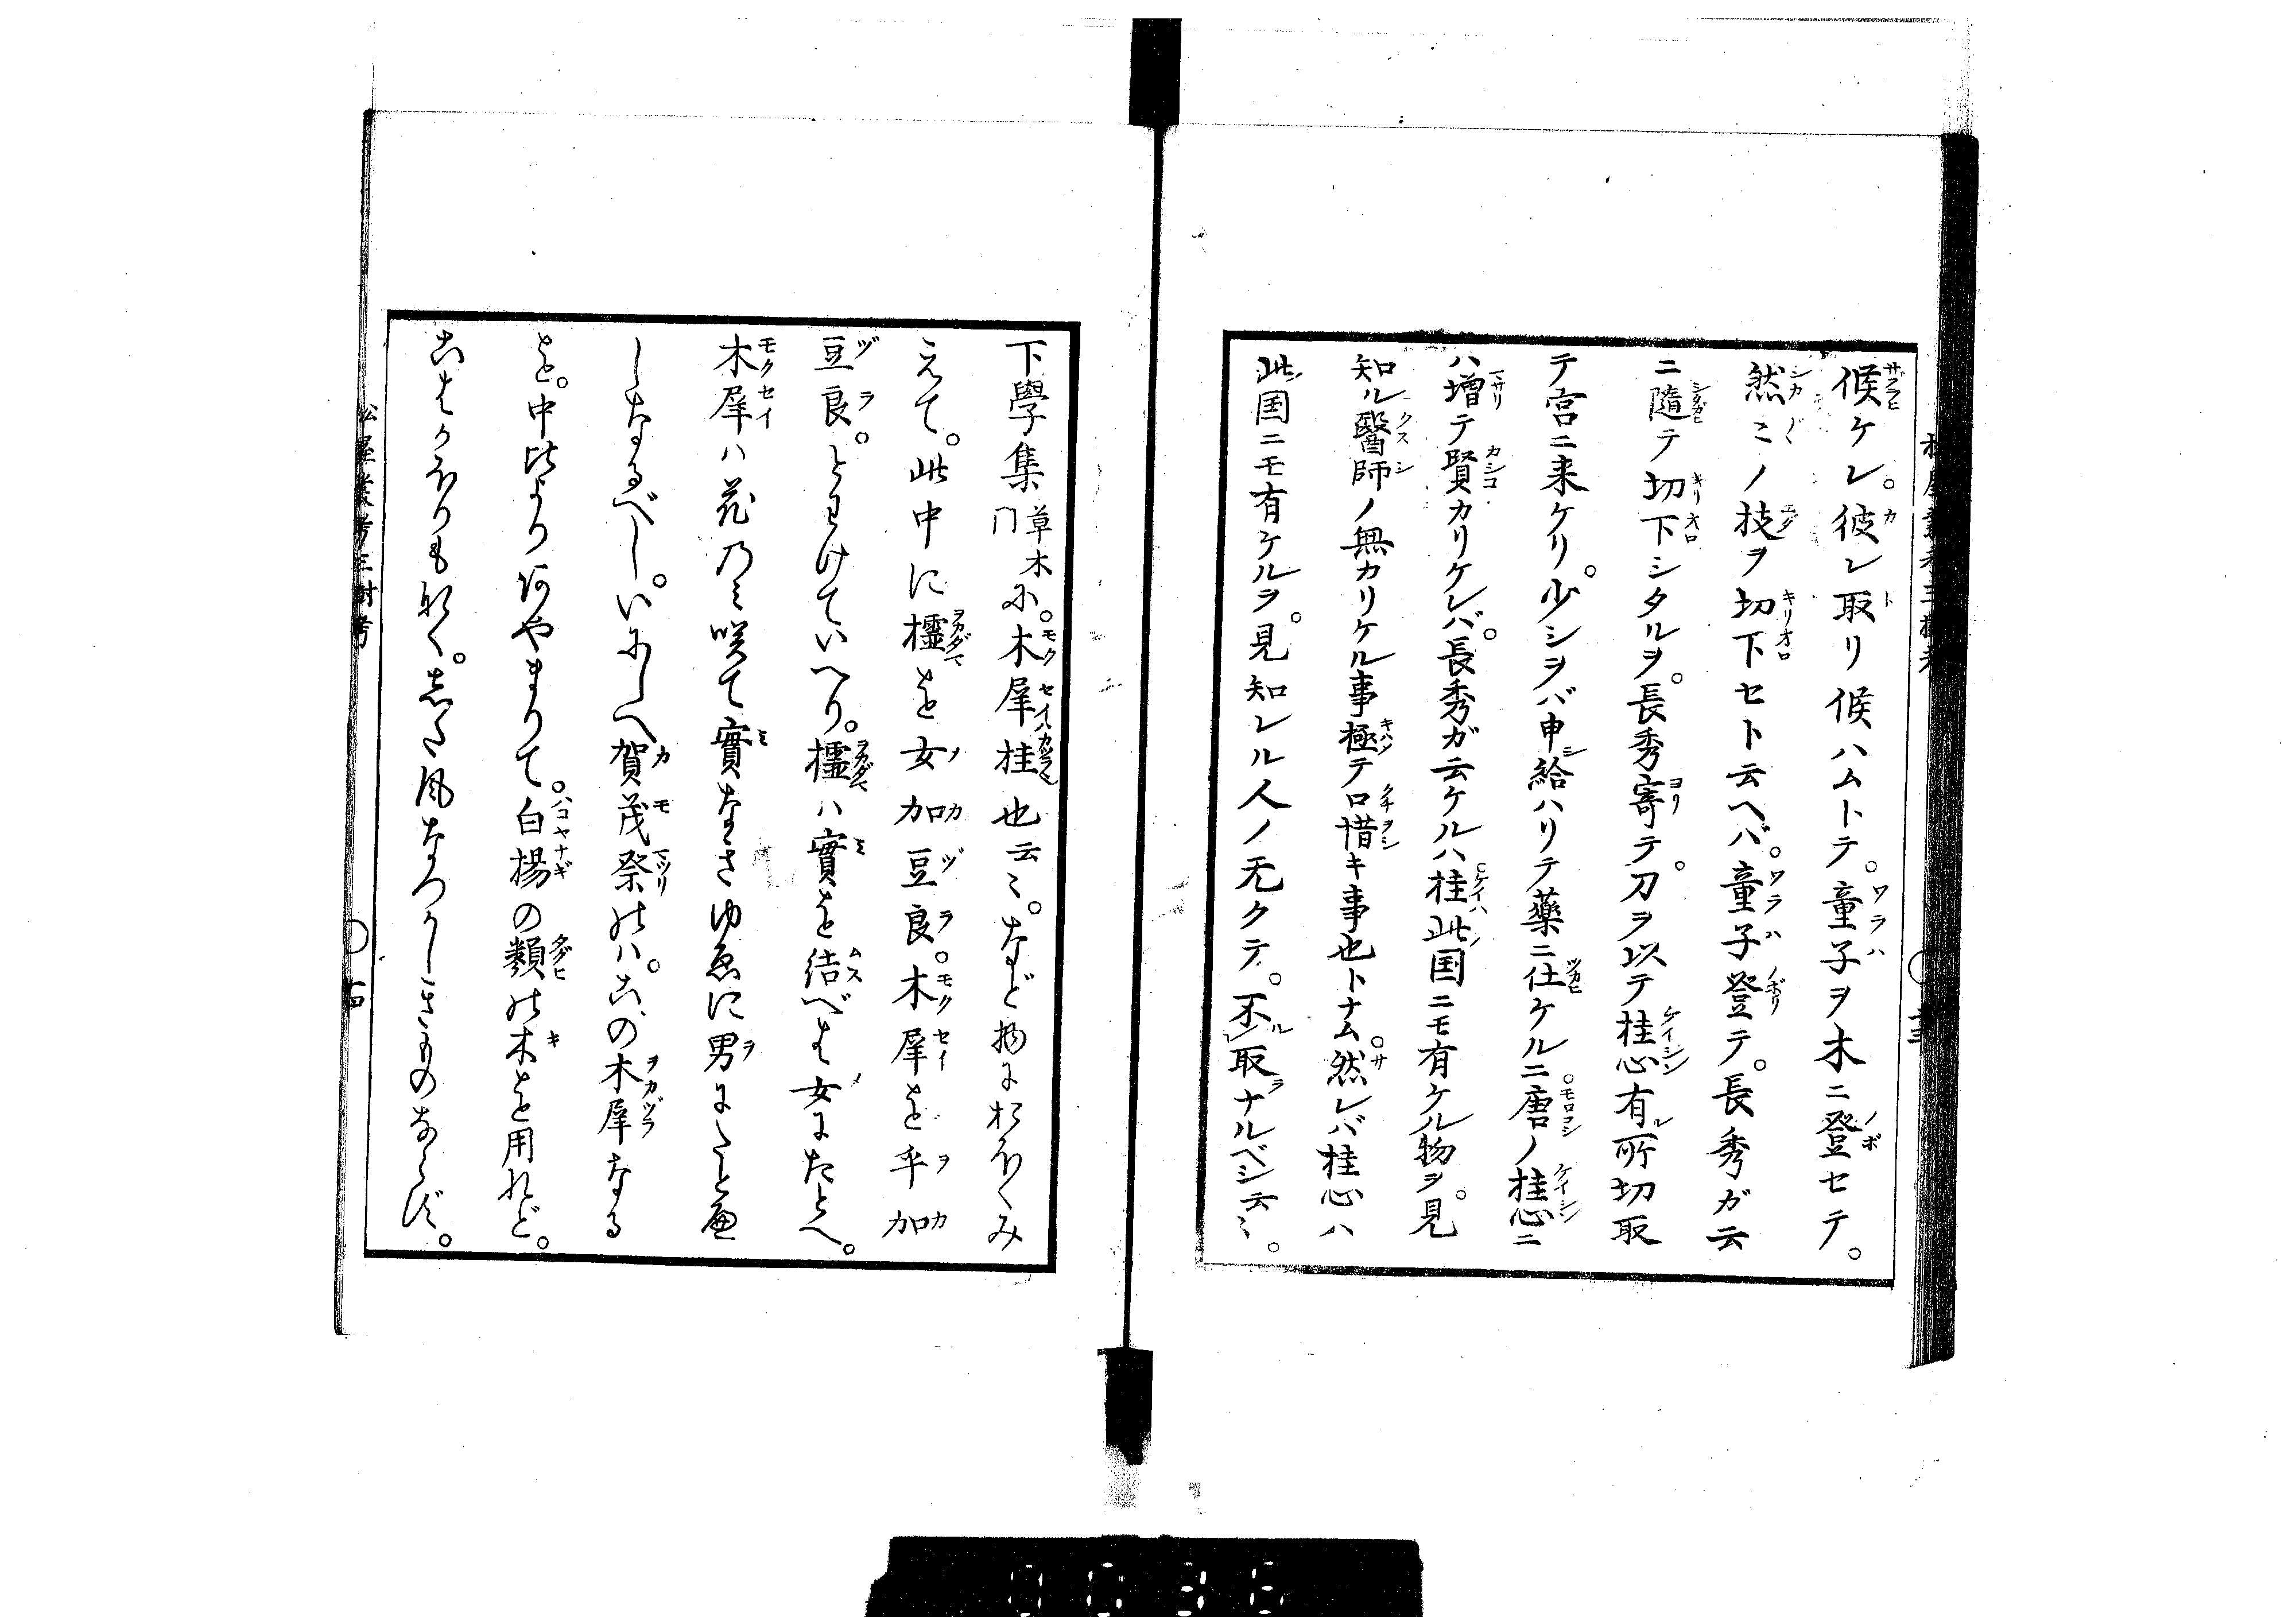 候ケレ。彼レ取リ候ハムトテ。童子ヲ木ニ登セテ。
然ミノ技ヲ切下セト云ヘバ。童子登テ。長秀ガ云
ニ隨テ切下シタルヲ。長秀寄テ。刀ヲ以テ桂心有所切取
テ宮ニ来ケリ。少シヲバ申給ハリテ藥ニ仕ケルニ。唐ノ桂心ニ
ハ増テ賢カリケレバ。長秀ガ云ケルハ桂此国ニモ有ケル物ヲ。見
知ル醫師ノ無カリケル事極テ口惜キ事也トナム。然レバ桂心ハ
此国ニモ有ケルヲ。見知レル人ノ无クテ。不取ナルベシ云〻。
下學集草木門に。木犀桂也云〻。など物におほくみ
えて。此中に櫺を女加豆良。木犀を乎加
豆良。とわけていへり。櫺ハ實を結べば女にたとへ。
木犀ハ花のミ咲て實なきゆゑに男にたとへ
しなるべし。いにしへ賀茂祭のハ。この木犀なる
を。中比よりあやまりて。白楊の類の木を用れど。
こはかをりも無く。さる風なつかしきものならず。
松屋叢考三樹考
〇十四